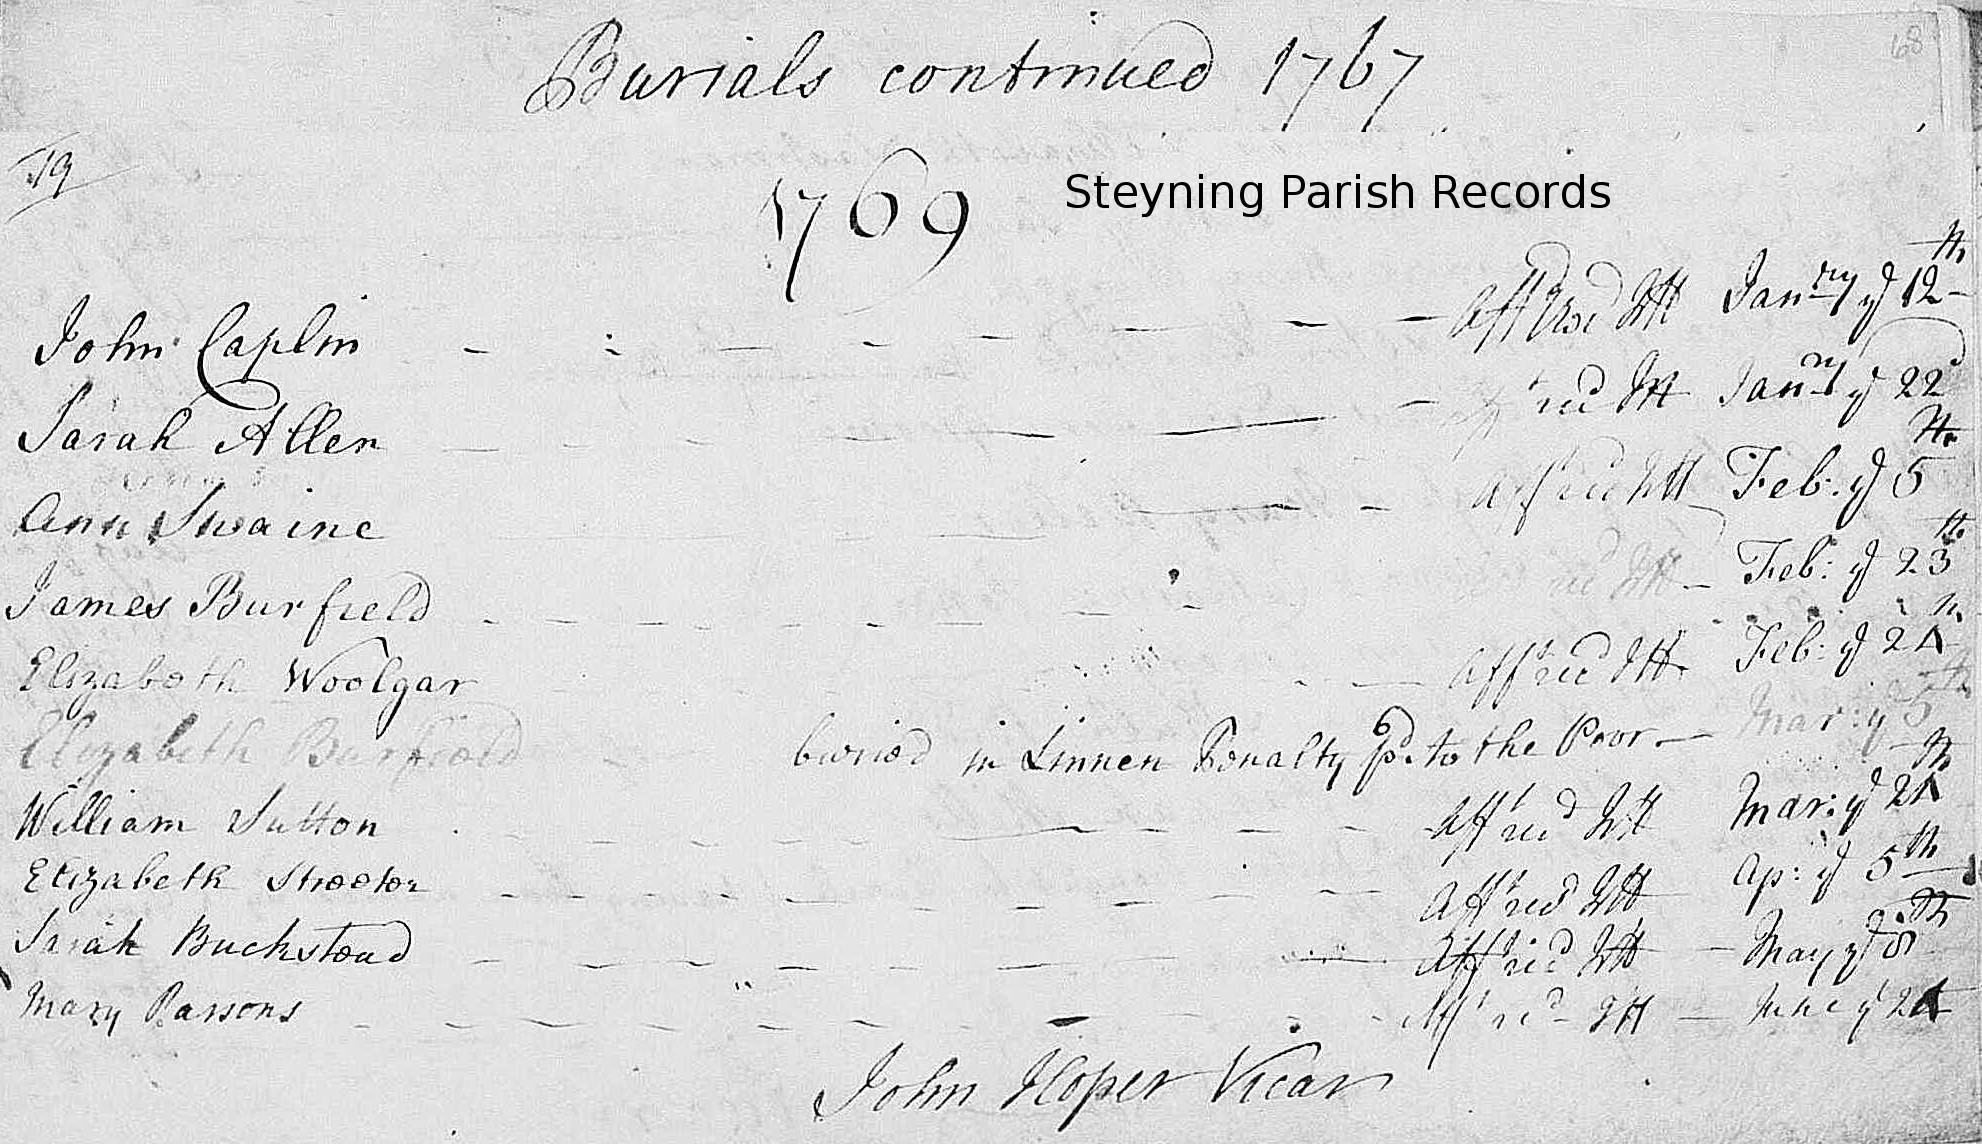 68
Burials continued 1767
19
1769
Steyning Parish Records
John Caplin Aff't rec'd JH Jan:ry ye 12th
Sarah Allen Aff't rec'd JH Jan:ry ye 22d
Ann Swaine Aff't rec'd JH Feb: ye 5th
James Burfield rec'd JH Feb: ye 23th
Elizabeth Woolgar Aff't rec'd JH Feb: ye 24th
Elizabeth Burfield buried in Linnen Penalty pd to the Poor Mar: ye 5th
William Sutton Aff't rec'd JH Mar: ye 24th
Elizabeth Streeter Aff't rec'd JH Ap: ye 5th
Sarah Buckstead Aff't rec'd JH May ye 8th
Mary Parsons Aff't rec'd JH June ye 24
John Hoper Vicar